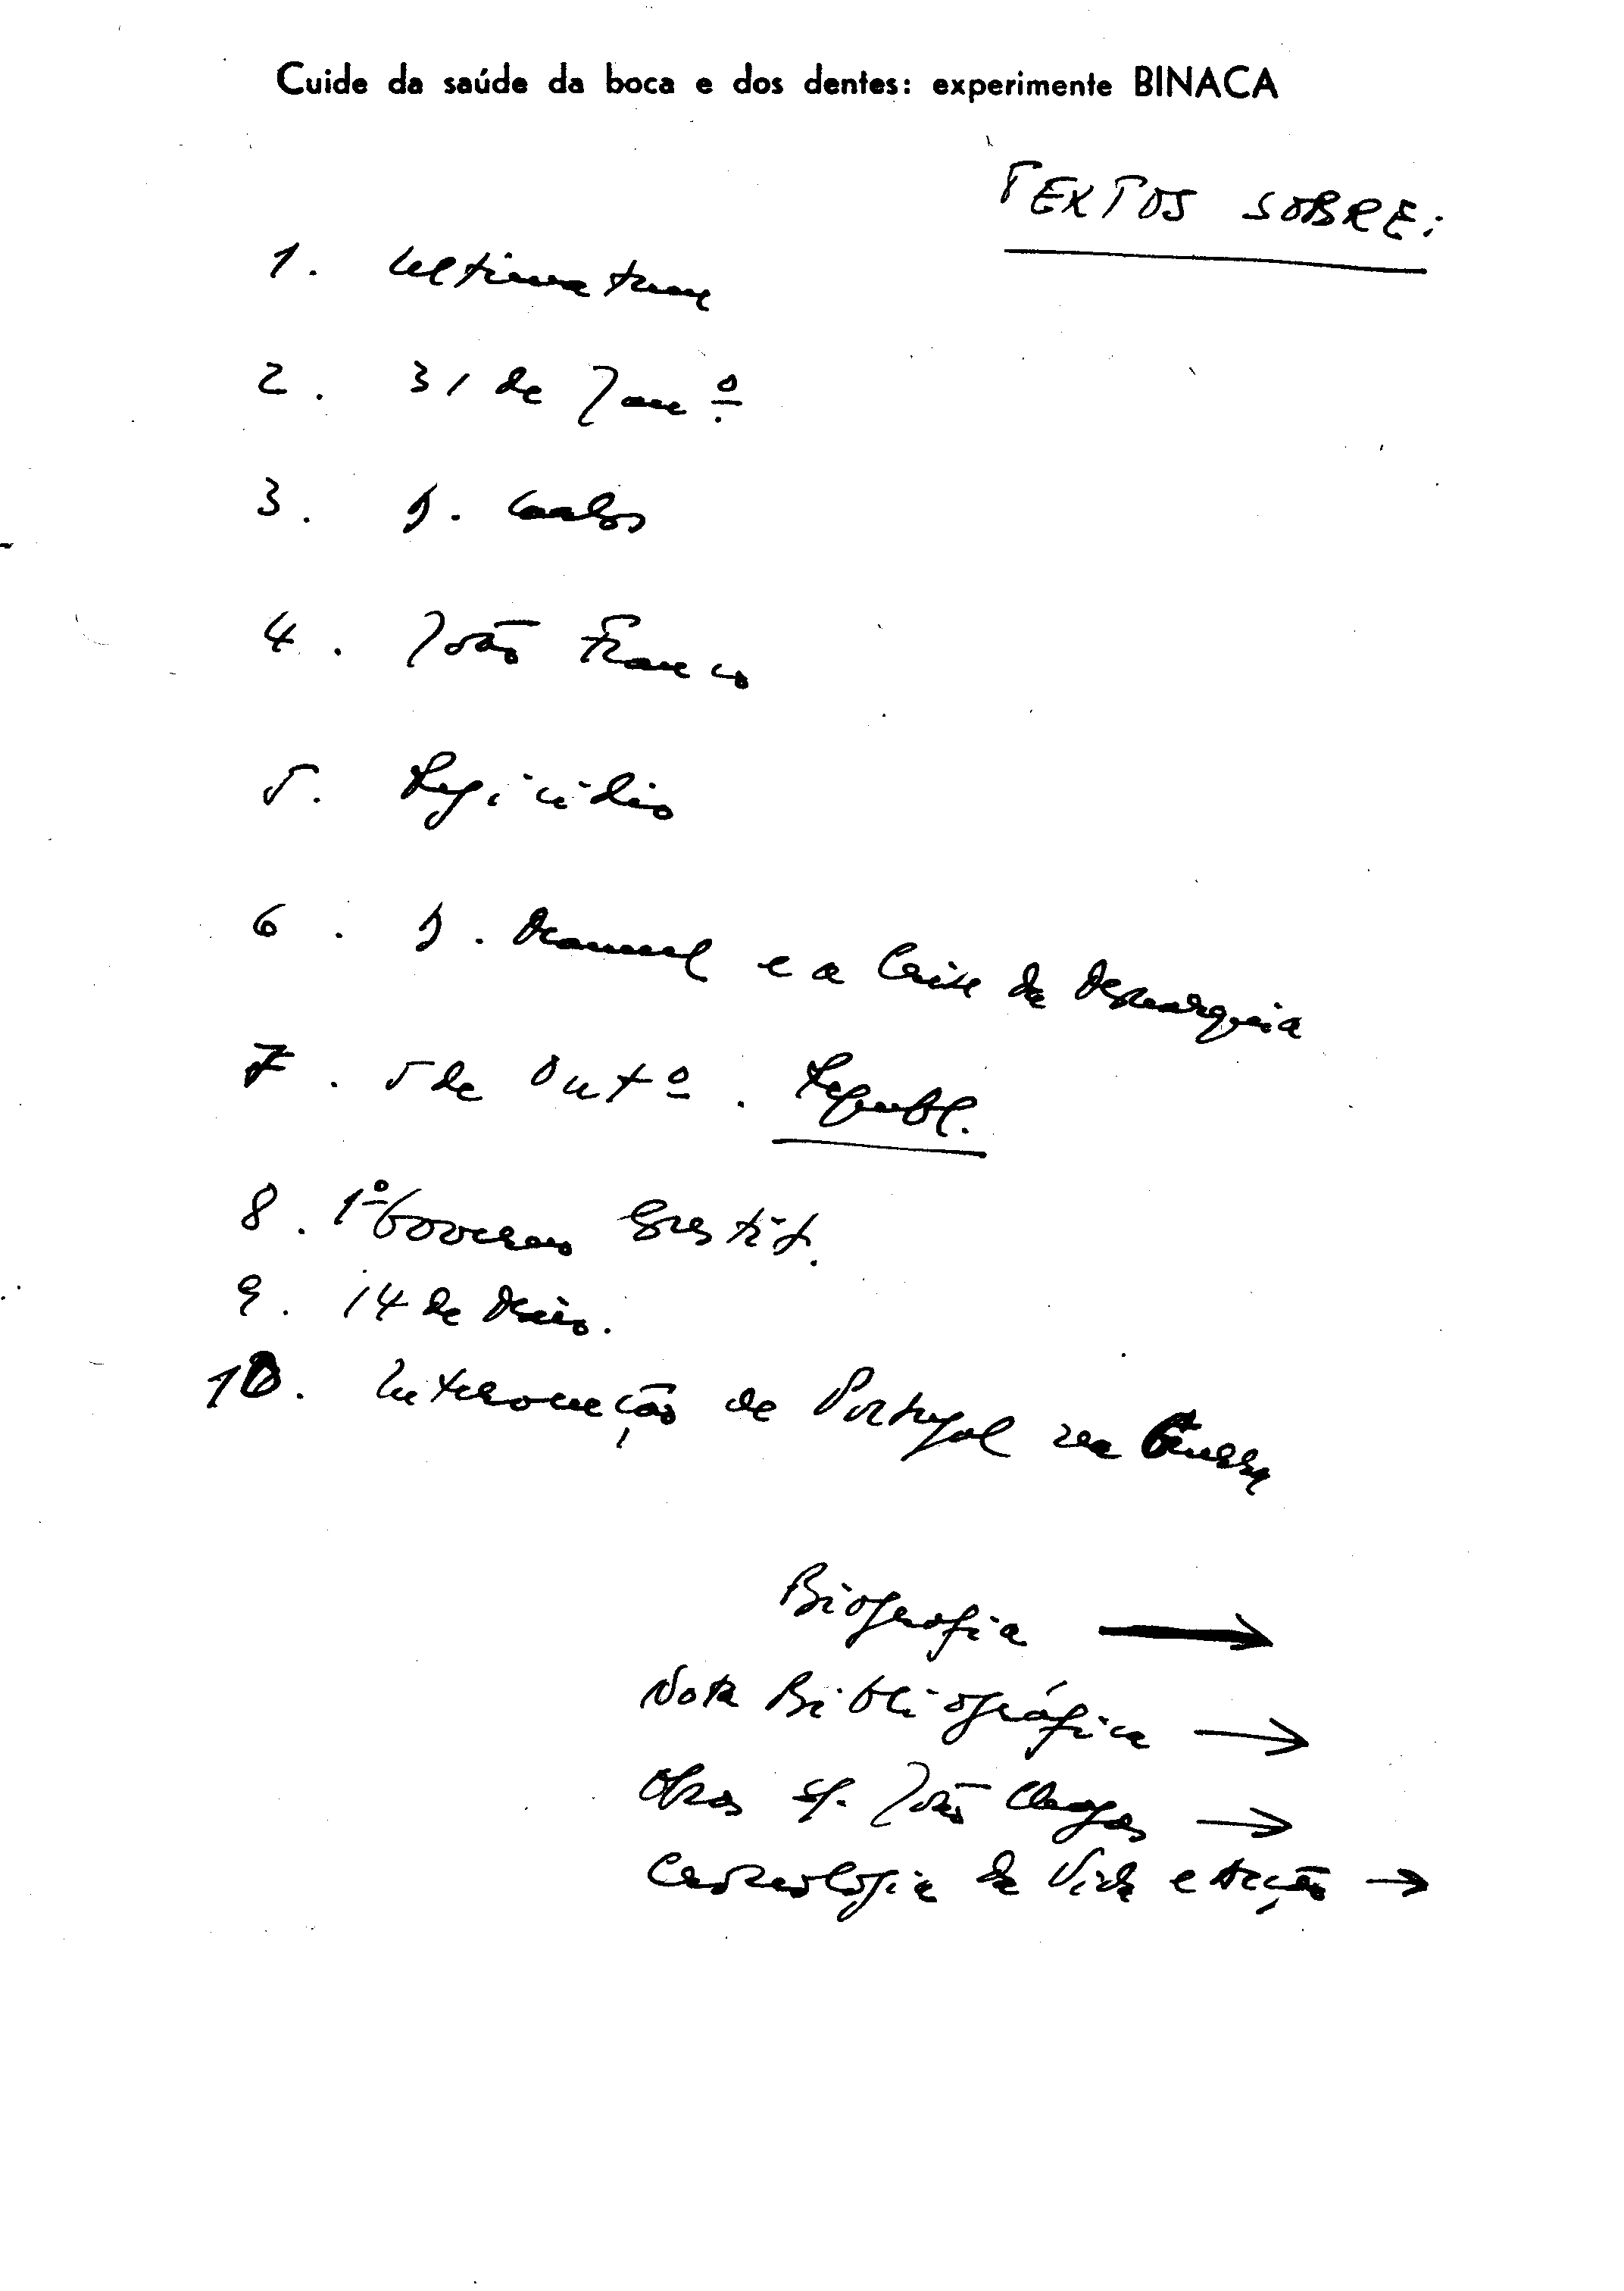 Cuide da saúde da boca e dos dentes: experimente BINACA
TEXTOS SOBRE:
1. Ultimatum
2. 31 de Janº
3. D. Carlos
4. João Franco
5. Regicídio
6. D. Manuel e a Crise da Monarquia
7. 5 de Outº. Republ.
8. 1º Governo Constit.
9. 14 de Maio.
10. Intervenção de Portugal na Guerra
Biografia →
Nota Bibliográfica →
Obras s/. João Chagas →
Cronologia da Vida e Acção →